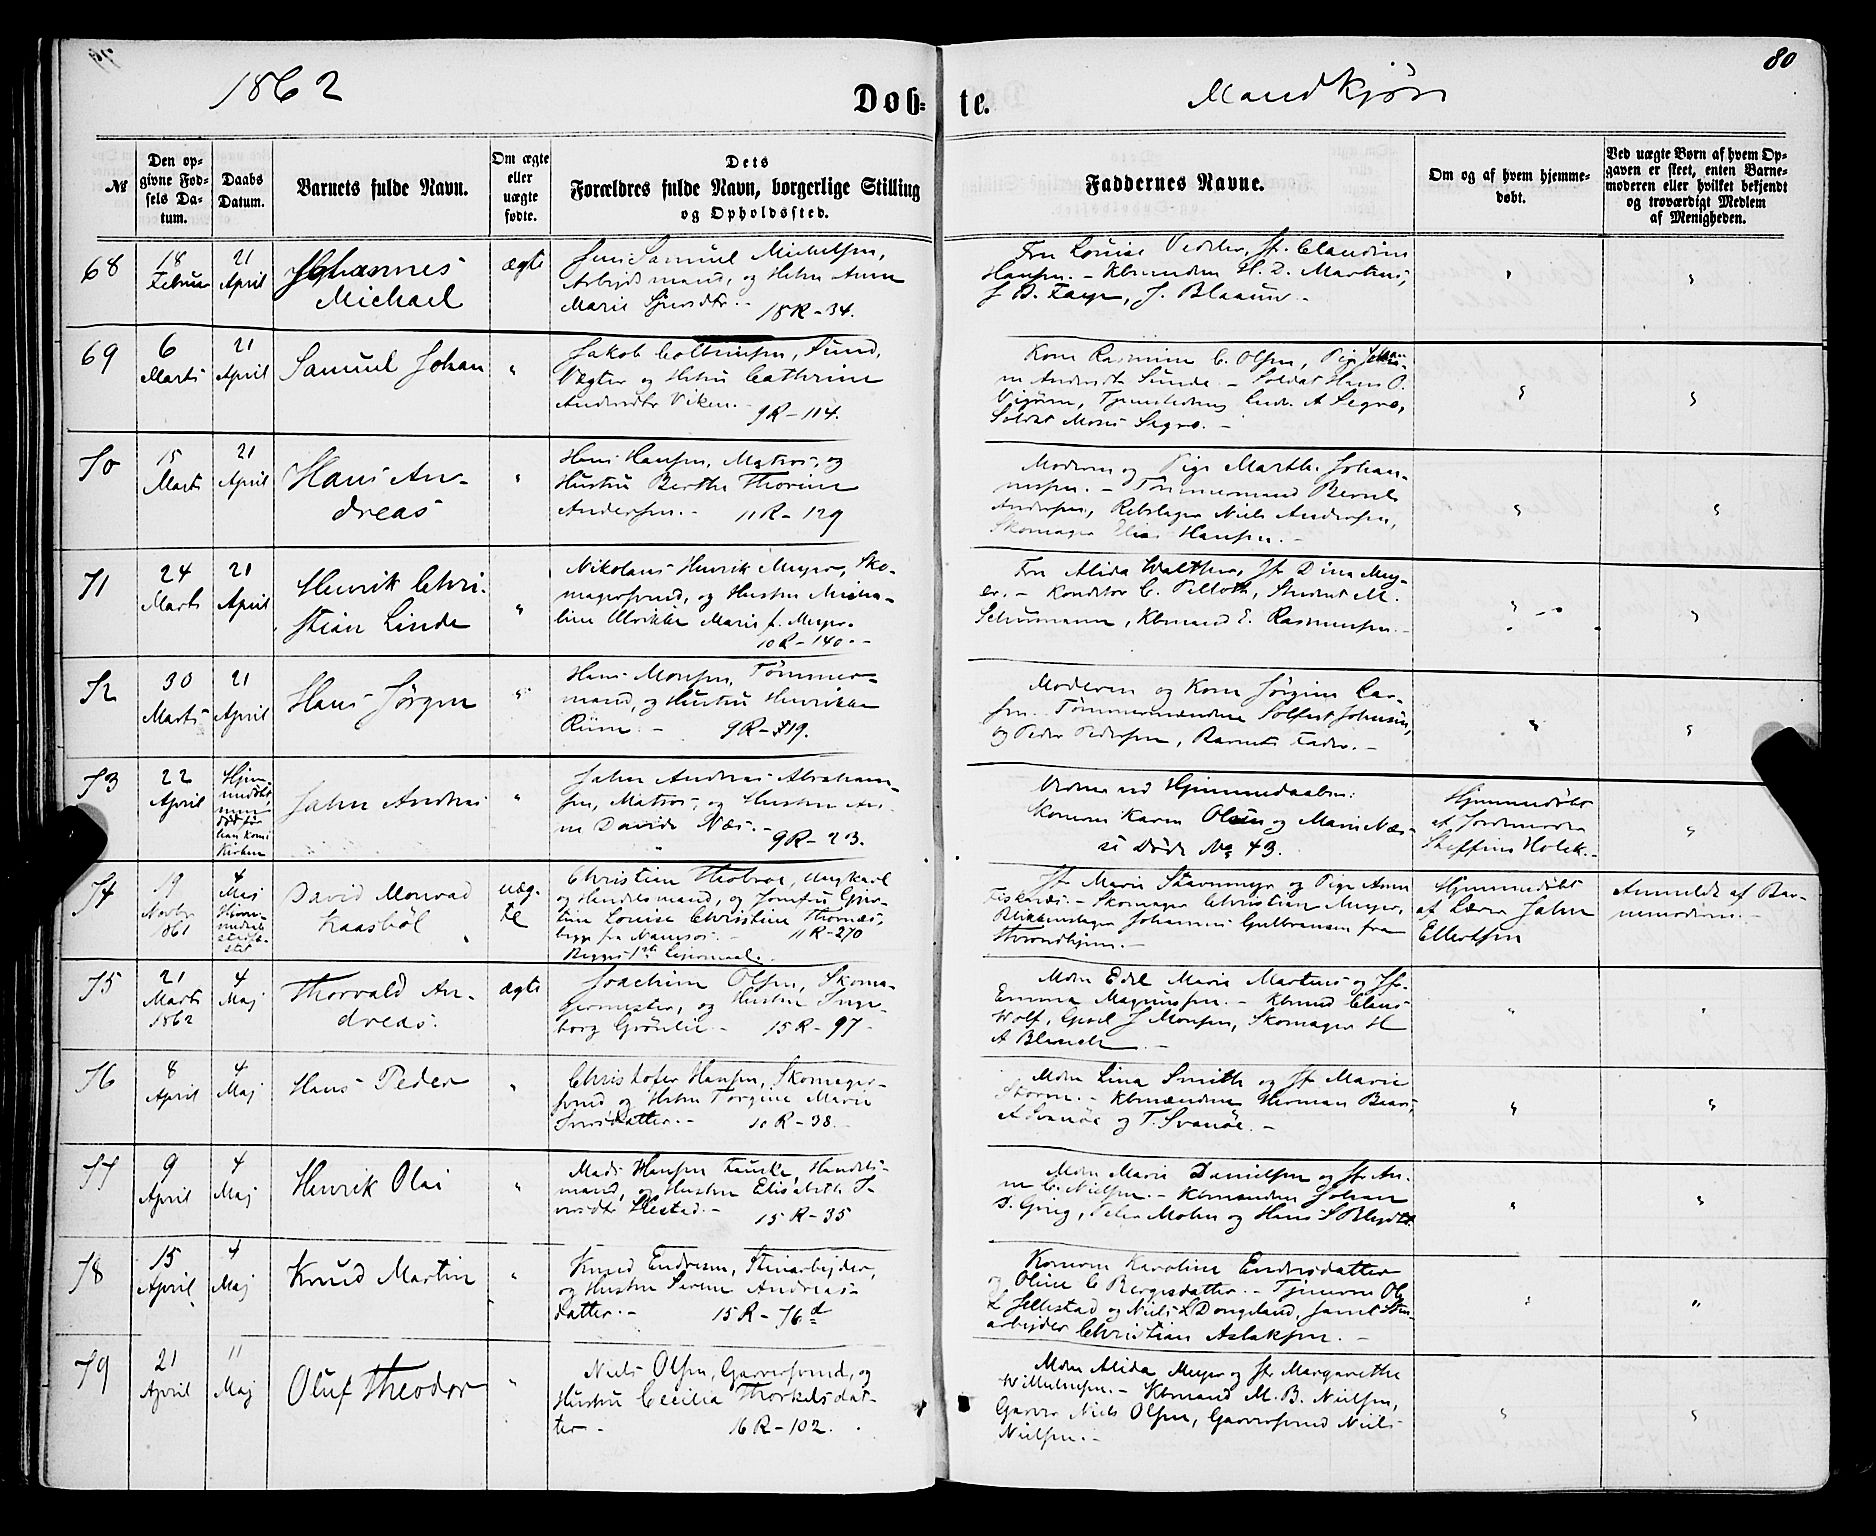 1862
Døb-
te.
Mandkjøn
80
№
Den op-
givne Fød-
sels Da-
tum.
Daabs
Datum.
Barnets fulde Navn.
Om ægte
eller
uægte
fødte.
Dets
Forældres fulde Navn, borgerlige Stilling
og Opholdssted.
Faddernes Navne.
Om og af hvem hjemme-
døbt.
Ved uægte Børn af hvem Op-
gaven er skeet, enten Barne-
moderen eller hvilket bekjendt
og troværdigt Medlem
af Menigheden.
68
18
Februar
21
April
Johannes
Michael
ægte
Samuel Michelsen,
Arbeidsmand, og Hstru Anne
Marie 18R-34.
Fru Louise Jf. Claudine
Hansen. - H. D. Martens,
69
6
Marts
21
April
Samuel Johan
"
Jakob Sund,
Vægter og Hstru Cathrine
Andersdtr Viken. 9R-114.
Kone Rasmine C. Olsen, Pige Johan-
ne Andersdtr Sunde. - Soldat Hans O.
A Segro,
Soldat Mons Segro. -
70
15
Marts
21
April
Hans An-
dreas
"
Hans Hansen, Matros, og
Hustru Berthe Thorine
Andersen. - 11R-129
Moderen og Pige Marthe Johan-
nesen. - Tømmermand Bernt
Andersen, Rebslager Niels Andersen,
Skomager Elias Hansen. -
71
24
Marts
21
April
Henrik Chri-
stian Linde
"
Nikolaus Henrik Meyer, Sko-
magersvend, og Hustru Micha-
line Ulrikke Marie f. Meyer.
10R-140. -
Fru Alida Walther, Jf. Dina Mey-
er. - Konditor C. Student M.
Schumann, Kbmand E. Rasmussen. -
72
30
Marts
21
April
Hans Jørgen
"
Hans Monsen, Tømmer-
mand, og Hustru Henrikke
9R-719.
Moderen og Kone Jørgine Lar-
sen. Tømmermændene Johnsen,
og Peder Pedersen, Barnets Fader. -
73
22
April
Hjem-
medøbt
men
død før
han kom i
Kirken
Jahn Andreas
"
Jahn Andreas Abraham-
sen, Matros, og Hustru An-
ne Davida Næs. -
9R-23.
Vidner ved Hjemmedaaben:
Konerne Karen Olsen og Marie Næs-
se Døde No 43.
Hjemmedøbt
af Jordemoder
Steffine Holck. -
74
19
Novbr
1861
4
Maj
Hjem-
medaab
stadfæ-
stet
David Monrad
Kaasbøl
uæg-
te
Christian Ungkarl
og Handelsmand, og Jomfru
Louise Christine Thornæs,
begge fra Namsos. - 11R-270
Begges 1ste Leiermaal. -
Jf. Marie Stavnmyr og Pige Anne
Fisknæs. - Skomager Christian Meyer,
Blikkenslager Johannes Gulbransen fra
Throndhjem. -
Hjemmedøbt
af Lærer Jahn
Ellertsen
Anmeldt af Bar-
nemoderen. -
75
21
Marts
1862
4
Maj
Thorvald An-
dreas.
ægte
Joachim Olsen, Skoma-
germester, og Hustru Inge-
borg Grønlie - 15R-97
Mdm Edel Marie Martens og Jfr
Emma Magnussen. - Kbmd Claus
Wolf, J Monsen, Skomager H
A
76
8
April
4
Maj
Hans Peder
"
Christofer Hansen, Skomager-
svend og Hstru Torgine Marie
Iversdatter. - 10R-38.
Mdm Lina Smith og Jf. Marie
Storm. - Kbmændene Herman
A Svanøe og T. Svanøe. -
77
9
April
4
Maj
Henrik Olai
"
Mads Hansen Handels-
mand, og Hustru Elisabeth I-
versdtr - 15R-35
Mdm Marie Danielsen og Jf. An-
ne C. Nielsen. - Kbmændene Johan
D. Grieg, Peter Mohn og Hans S Blydt.
78
15
April
4
Maj
Knud Martin
"
Knud Endresen, Stenarbejder,
og Hustru Serene Andreas-
datter. - 15R-76d
Konerne Karoline Endresdatter
og Oline C Børgesdatter. - Tjenerne Ole
L Jellestad og Niels L Dongeland, samt Sten-
arbejder Christian Aslaksen. -
79
21
April
11
Maj
Oluf Theodor
"
Niels Olsen, Garversvend, og
Hustru Cecilia Thorkelsdat-
ter - 16R-102.
Mdm Alida Meyer og Jf. Margarethe
Willumsen. - Kbmand M. B. Nielsen,
Garver Niels Olsen, Garversvend Niels
Nielsen. -